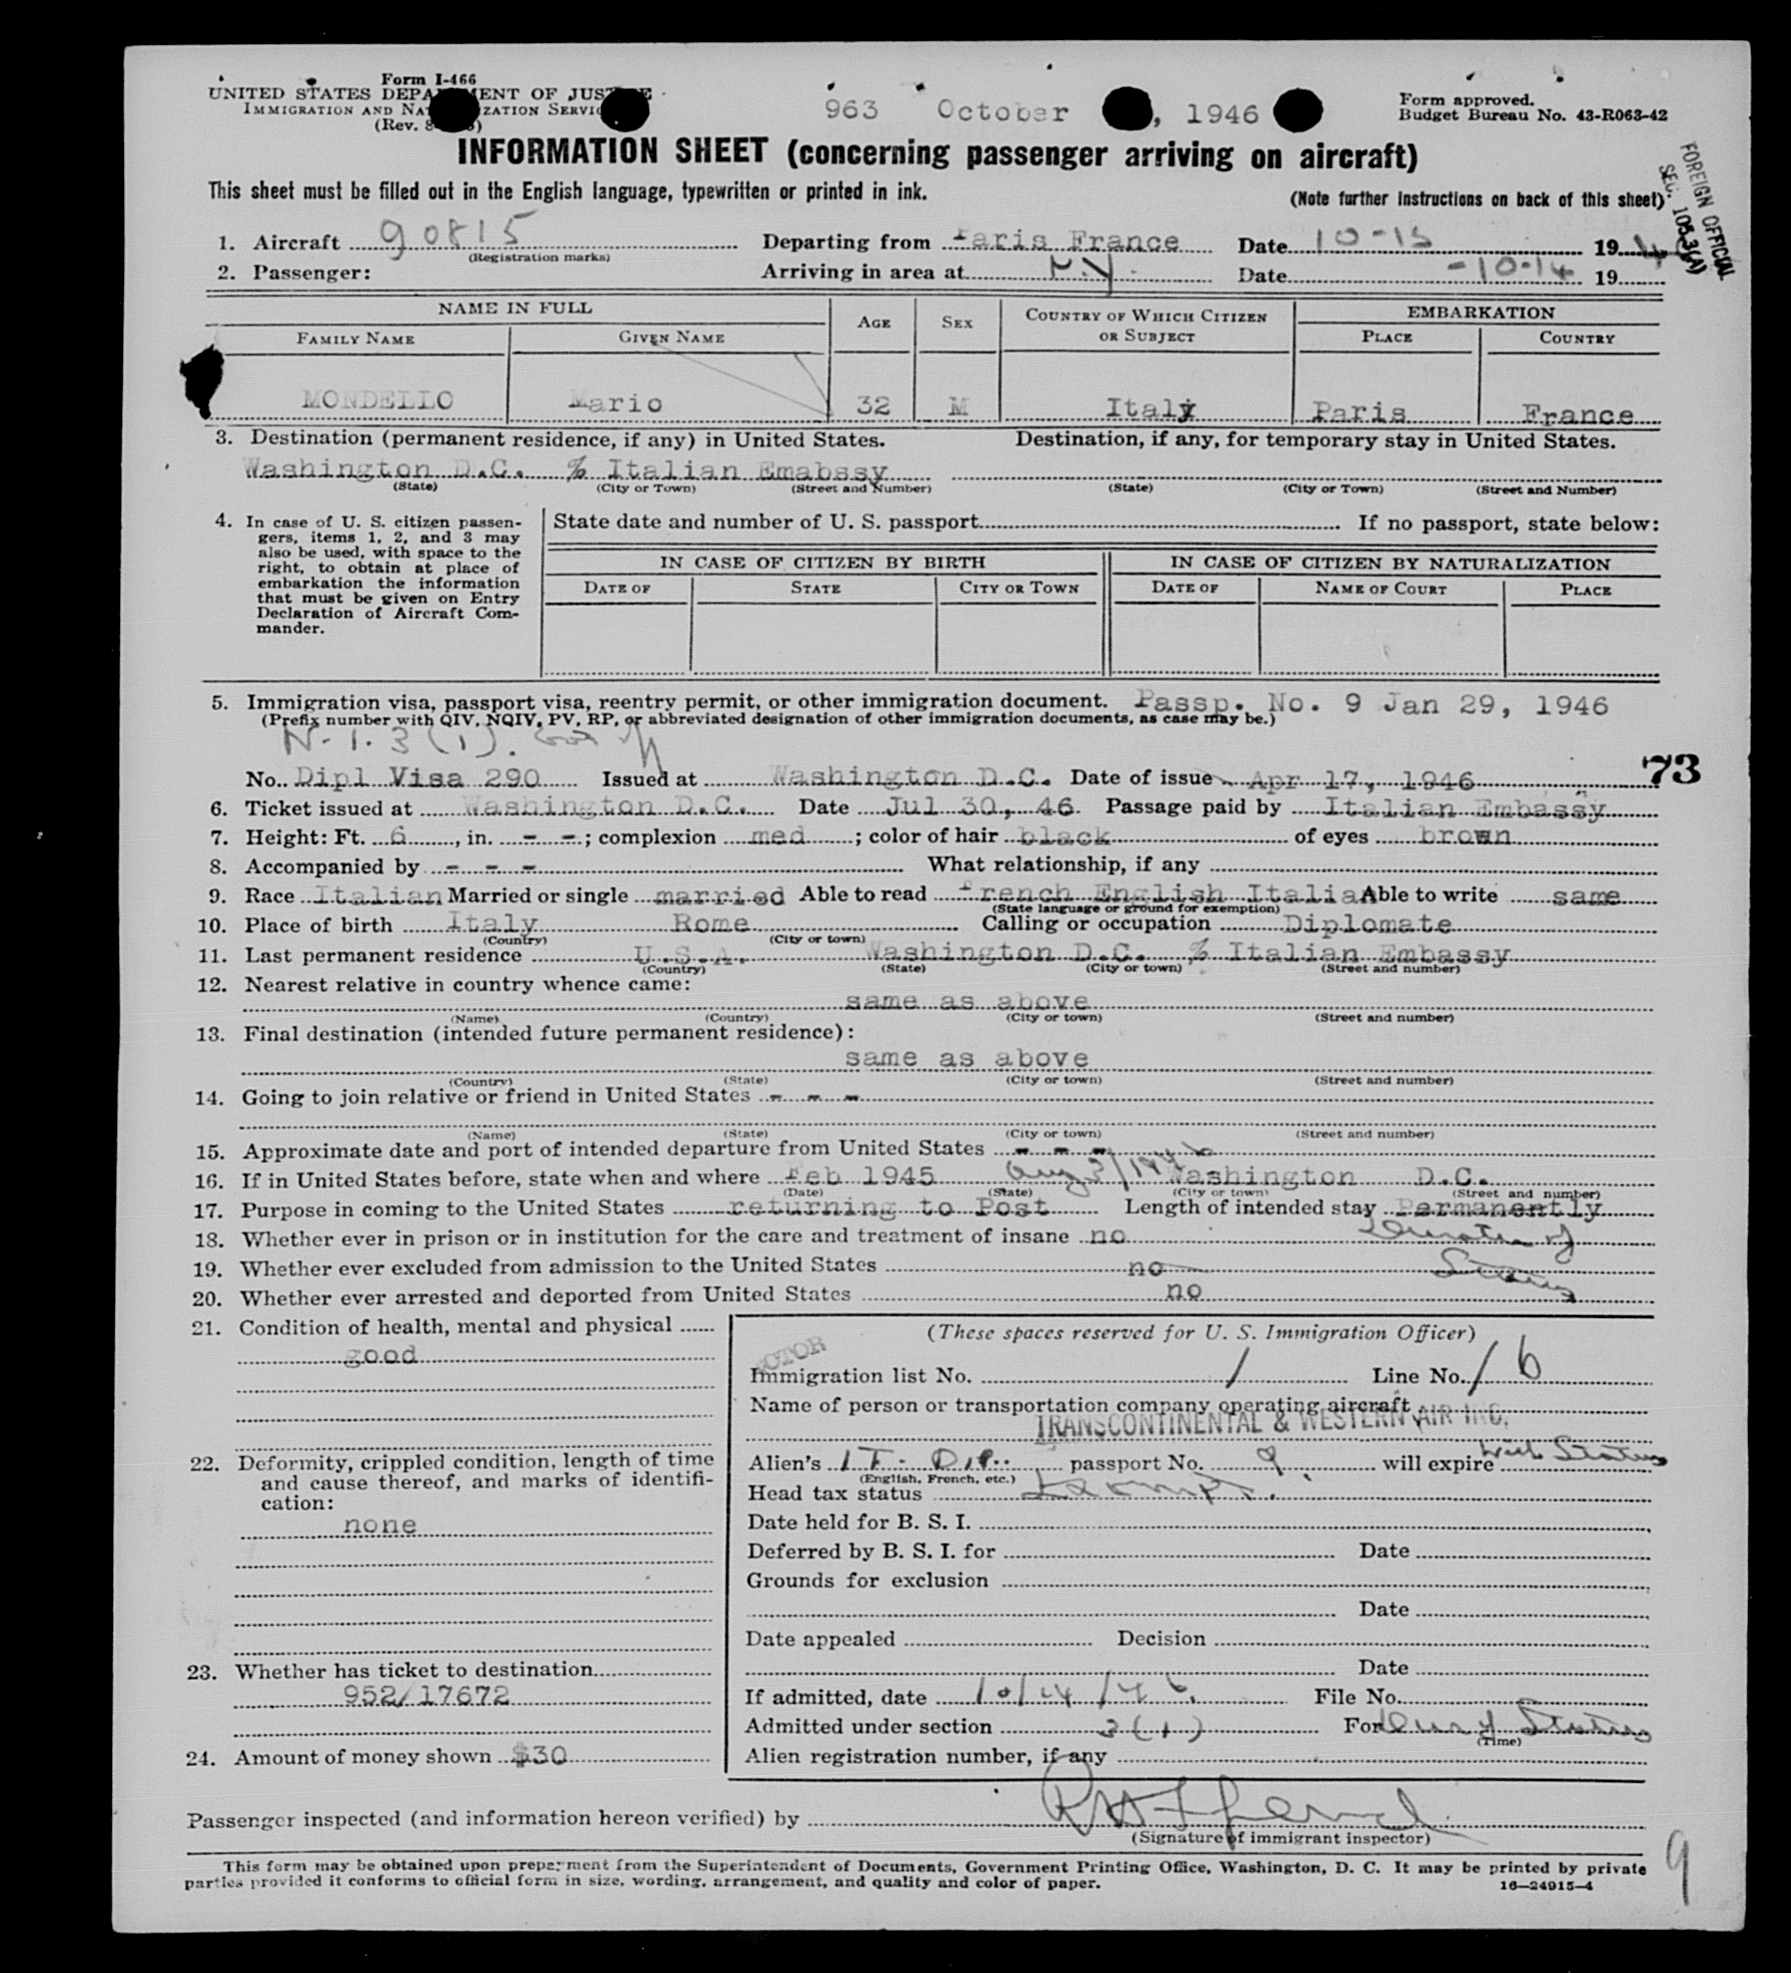 Form I-466
UNITED STATES DEPARTMENT OF JUSTICE
IMMIGRATION AND NATURALIZATION SERVICE
(Rev.
963 October , 1946
Form approved.
Budget Bureau No. 43-R063-42
INFORMATION SHEET (concerning passenger arriving on aircraft)
This sheet must be filled out in the English language, typewritten or printed in ink.
(Note further instructions on back of this sheet)
FOREIGN OFFICIAL
SEC. 105.3(A)
1. Aircraft 90815 Departing from Paris France Date 10-13 19 46
(Registration marks)
2. Passenger: Arriving in area at N.Y. Date -10-14 19
NAME IN FULL
FAMILY NAME GIVEN NAME AGE SEX COUNTRY OF WHICH CITIZEN OR SUBJECT EMBARKATION PLACE COUNTRY
MONDELLO Mario 32 M Italy Paris France
3. Destination (permanent residence, if any) in United States. Destination, if any, for temporary stay in United States.
Washington D.C. % Italian Emabssy
(State) (City or Town) (Street and Number) (State) (City or Town) (Street and Number)
4. In case of U. S. citizen passen-
gers, items 1, 2, and 3 may
also be used, with space to the
right, to obtain at place of
embarkation the information
that must be given on Entry
Declaration of Aircraft Com-
mander.
State date and number of U. S. passport If no passport, state below:
IN CASE OF CITIZEN BY BIRTH IN CASE OF CITIZEN BY NATURALIZATION
DATE OF STATE CITY OR TOWN DATE OF NAME OF COURT PLACE
5. Immigration visa, passport visa, reentry permit, or other immigration document. Passp. No. 9 Jan 29, 1946
(Prefix number with QIV, NQIV, PV, RP, or abbreviated designation of other immigration documents, as case may be.)
N.I. 3(1).
No. Dipl Visa 290 Issued at Washington D.C. Date of issue Apr 17, 1946
73
6. Ticket issued at Washington D.C. Date Jul 30, 46. Passage paid by Italian Embassy
7. Height: Ft. 6, in. - -; complexion med; color of hair black of eyes brown
8. Accompanied by - - - What relationship, if any
9. Race Italian Married or single married Able to read French English Italian Able to write same
(State language or ground for exemption)
10. Place of birth Italy Rome Calling or occupation Diplomate
(Country) (City or town)
11. Last permanent residence U.S.A. Washington D.C. % Italian Embassy
(Country) (State) (City or town) (Street and number)
12. Nearest relative in country whence came:
same as above
(Name) (Country) (City or town) (Street and number)
13. Final destination (intended future permanent residence):
same as above
(Country) (State) (City or town) (Street and number)
14. Going to join relative or friend in United States - - -
(Name) (State) (City or town) (Street and number)
15. Approximate date and port of intended departure from United States - - -
16. If in United States before, state when and where Feb 1945 Aug 3/1946 Washington D.C.
(Date) (State) (City or town) (Street and number)
17. Purpose in coming to the United States returning to Post Length of intended stay Permanently
18. Whether ever in prison or in institution for the care and treatment of insane no Duration of
19. Whether ever excluded from admission to the United States no Status
20. Whether ever arrested and deported from United States no
21. Condition of health, mental and physical
good
22. Deformity, crippled condition, length of time
and cause thereof, and marks of identifi-
cation:
none
23. Whether has ticket to destination
952/17672
24. Amount of money shown $30
(These spaces reserved for U. S. Immigration Officer)
Immigration list No. 1 Line No. 16
Name of person or transportation company operating aircraft
TRANSCONTINENTAL & WESTERN AIR INC.
Alien's IT. Dip. passport No. 9 will expire with Status
(English, French, etc.)
Head tax status Exempt.
Date held for B. S. I.
Deferred by B. S. I. for Date
Grounds for exclusion
Date
Date appealed Decision
Date
If admitted, date 10/14/46. File No.
Admitted under section 3(1) For Dur of Status
(Time)
Alien registration number, if any
Passenger inspected (and information hereon verified) by
(Signature of immigrant inspector)
This form may be obtained upon prepayment from the Superintendent of Documents, Government Printing Office, Washington, D. C. It may be printed by private
parties provided it conforms to official form in size, wording, arrangement, and quality and color of paper.
16—24915-4
9